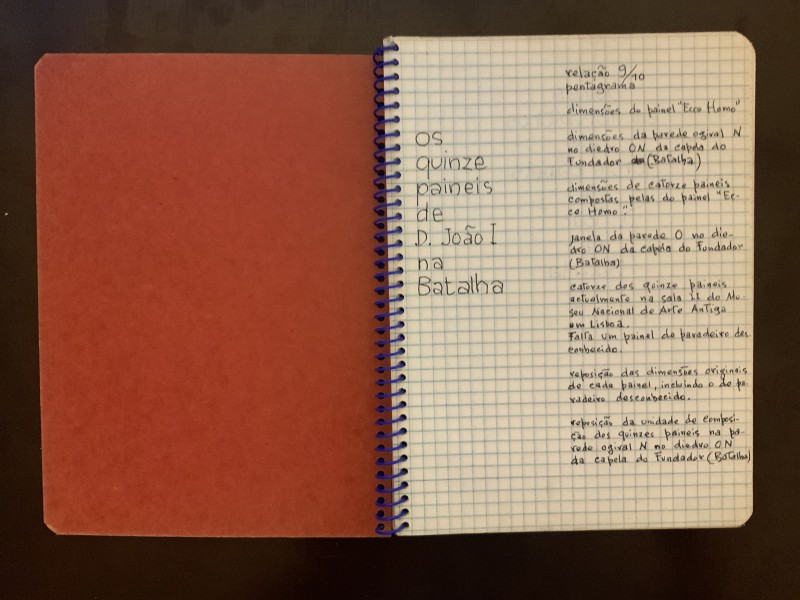 os
quinze
paineis
de
D. João I
na
Batalha
relação 9/10
pentagrama
dimensões do painel "Ecce Homo"
dimensões da parede ogival N
no diedro ON da capela do
Fundador (Batalha)
dimensões de catorze paineis
compostas pelas do painel "Ec-
ce Homo".
janela da parede O no die-
dro ON da capela do Fundador
(Batalha)
catorze dos quinze paineis
actualmente na sala 11 do Mu-
seu Nacional de Arte Antiga
em Lisboa.
Falta um painel de paradeiro des
conhecido.
reposição das dimensões originais
de cada painel, incluindo o de pa-
radeiro desconhecido.
reposição da unidade de composi-
ção dos quinzes paineis na pa-
rede ogival N no diedro ON
da capela do Fundador (Batalha)